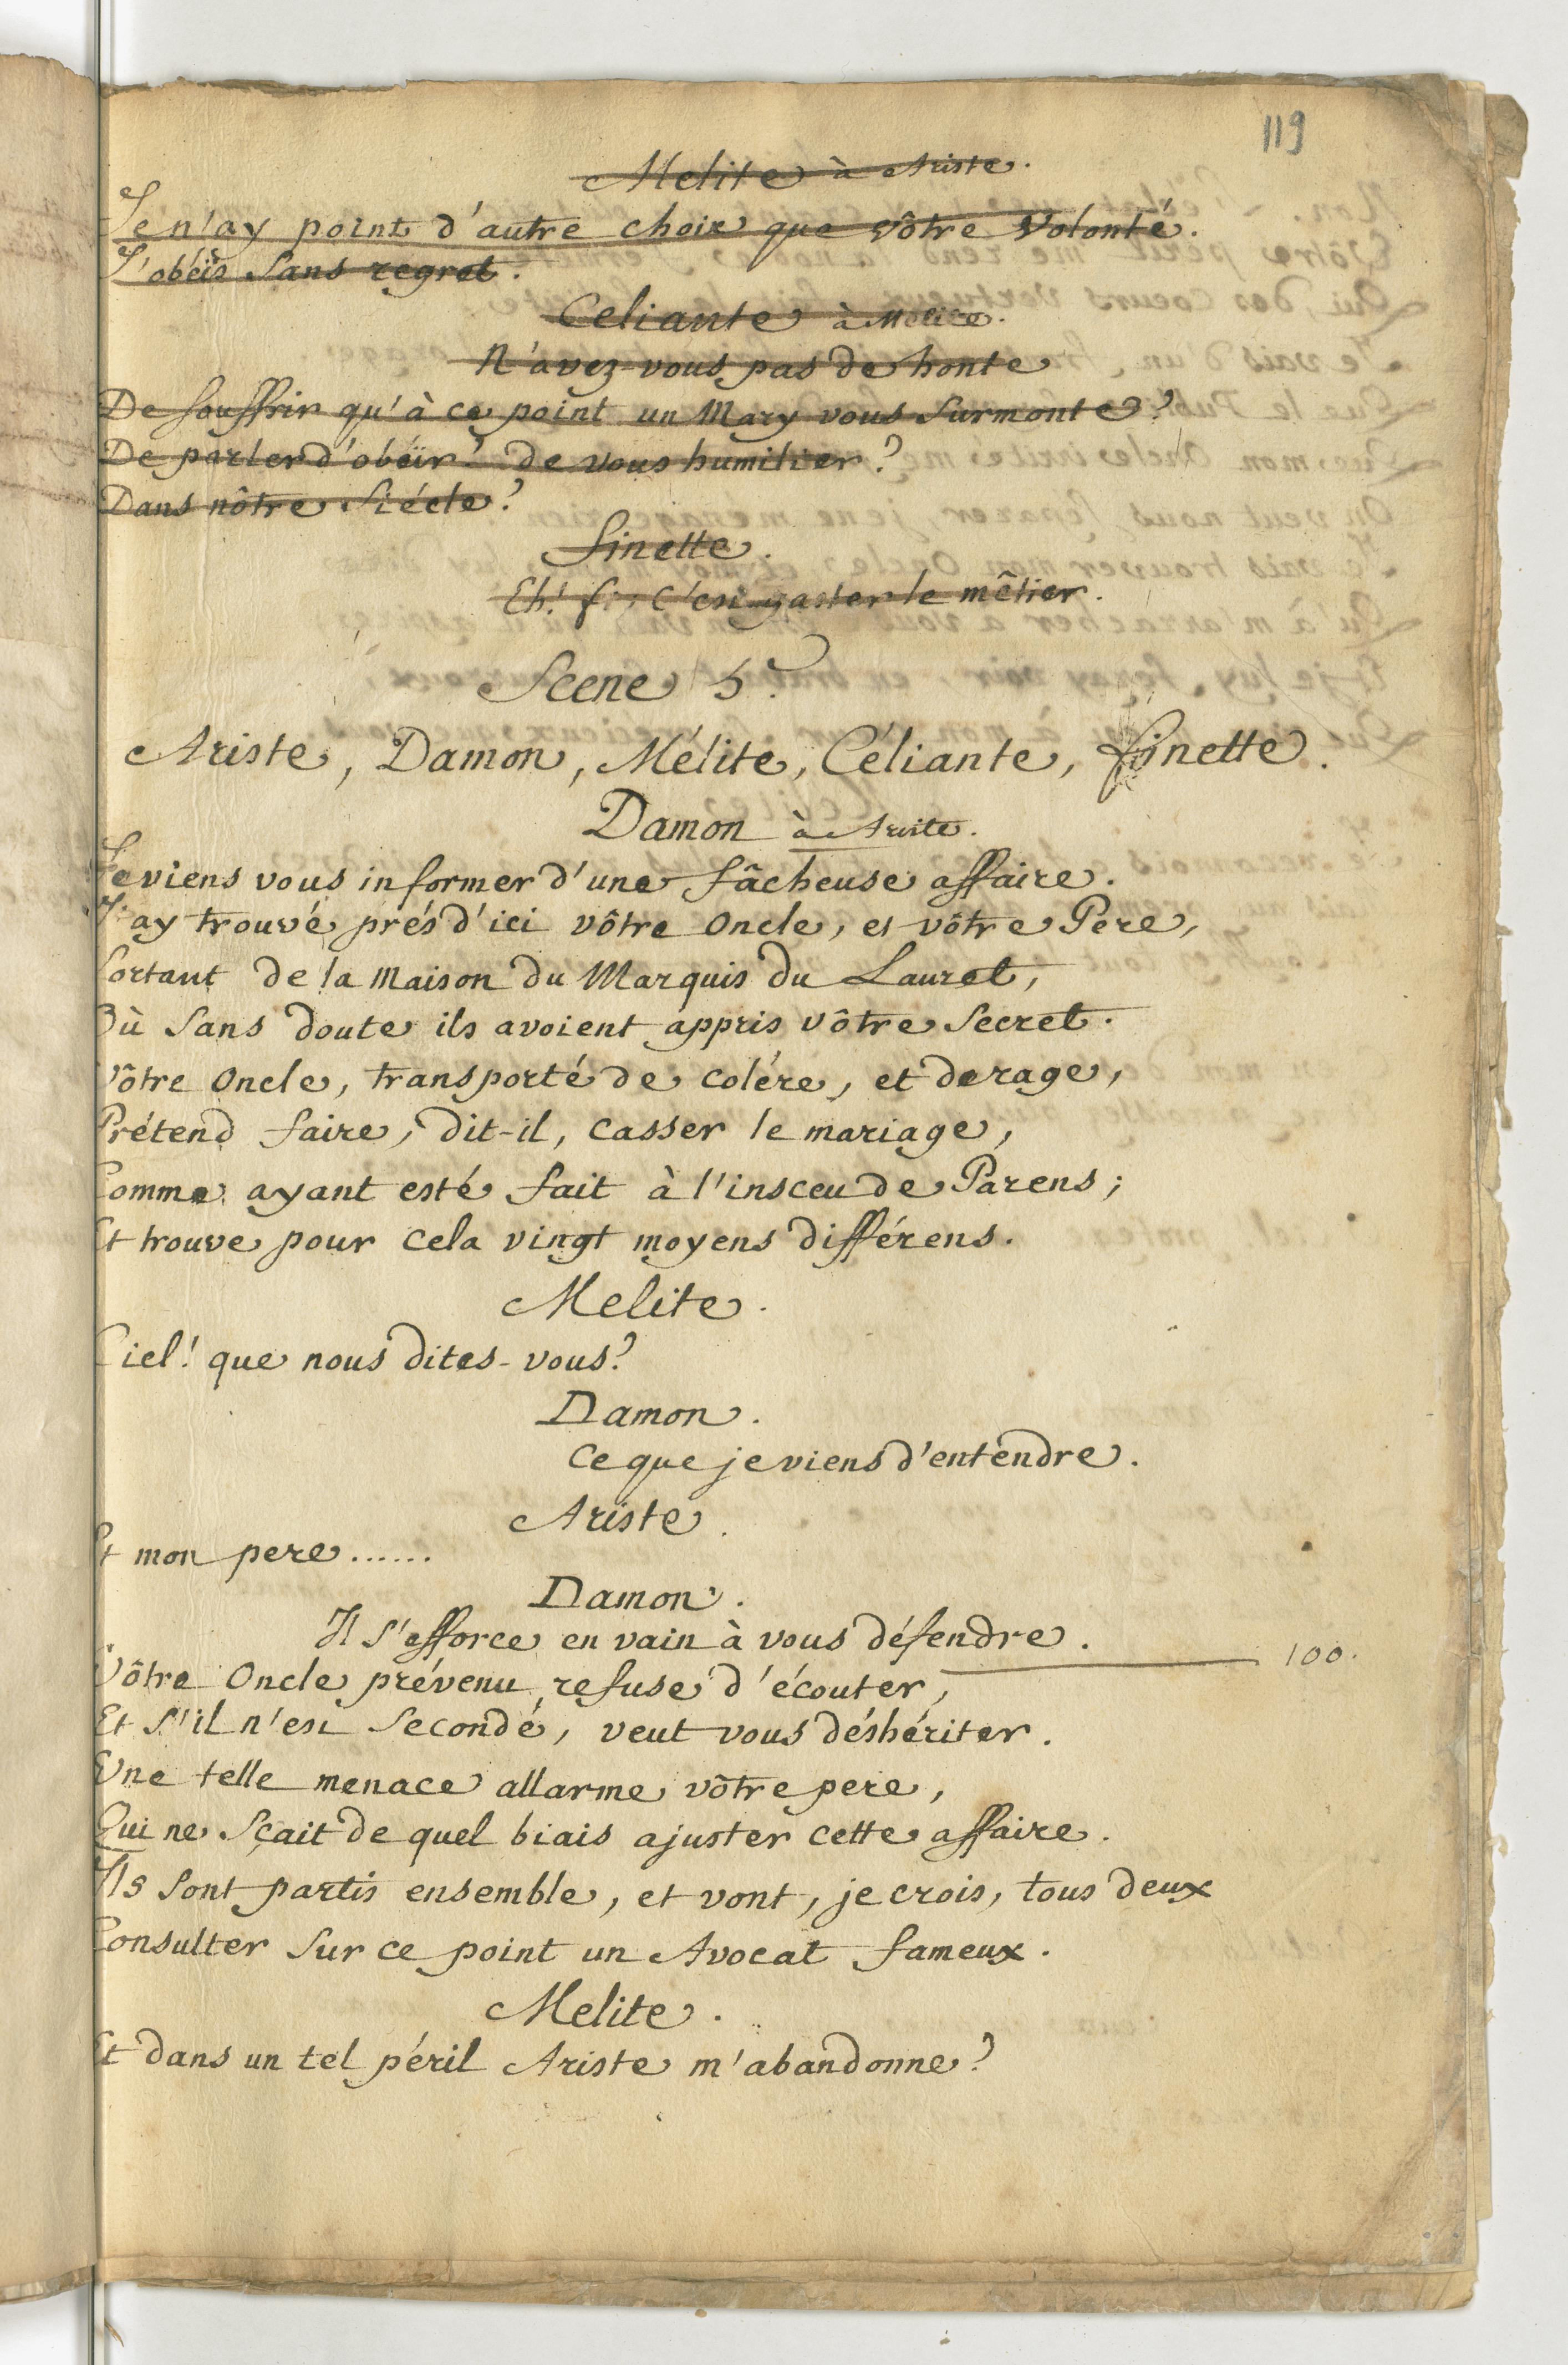 119
Melite à Ariste.
Je n'ay point d'autre choix que vôtre volonté.
J'obéis sans regret.
Celiante à Melite.
N'avez-vous pas de honte
De souffrir qu'à ce point un Mary vous surmonte?
De parler d'obéïr? de vous humilier?
Dans nôtre Siécle?
Finette.
Eh! fi, c'est gaster le mêtier.
Scene 5.e
Ariste, Damon, Mélite, Céliante, Finette.
Damon à Ariste.
Je viens vous informer d'une fâcheuse affaire.
J'ay trouvé prés d'ici vôtre Oncle, et vôtre Pere,
Sortant de la maison du Marquis du Lauret,
Où sans doute ils avoient appris vôtre Secret.
Vôtre Oncle, transporté de colére, et de rage,
Prétend faire, dit-il, casser le mariage,
Comme ayant esté fait à l'insceu de Parens;
Et trouve pour cela vingt moyens différens.
Melite.
Ciel! que nous dites-vous?
Damon.
Ce que je viens d'entendre.
Ariste.
Et mon pere......
Damon.
Il s'efforce en vain à vous défendre.
100.
Vôtre Oncle prévenu refuse d'écouter,
Et s'il n'est Secondé, veut vous déshériter.
Une telle menace allarme vôtre pere,
Qui ne sçait de quel biais ajuster cette affaire.
Ils sont partis ensemble, et vont, je crois, tous deux
Consulter sur ce point un Avocat fameux.
Melite.
Et dans un tel péril Ariste m'abandonne?